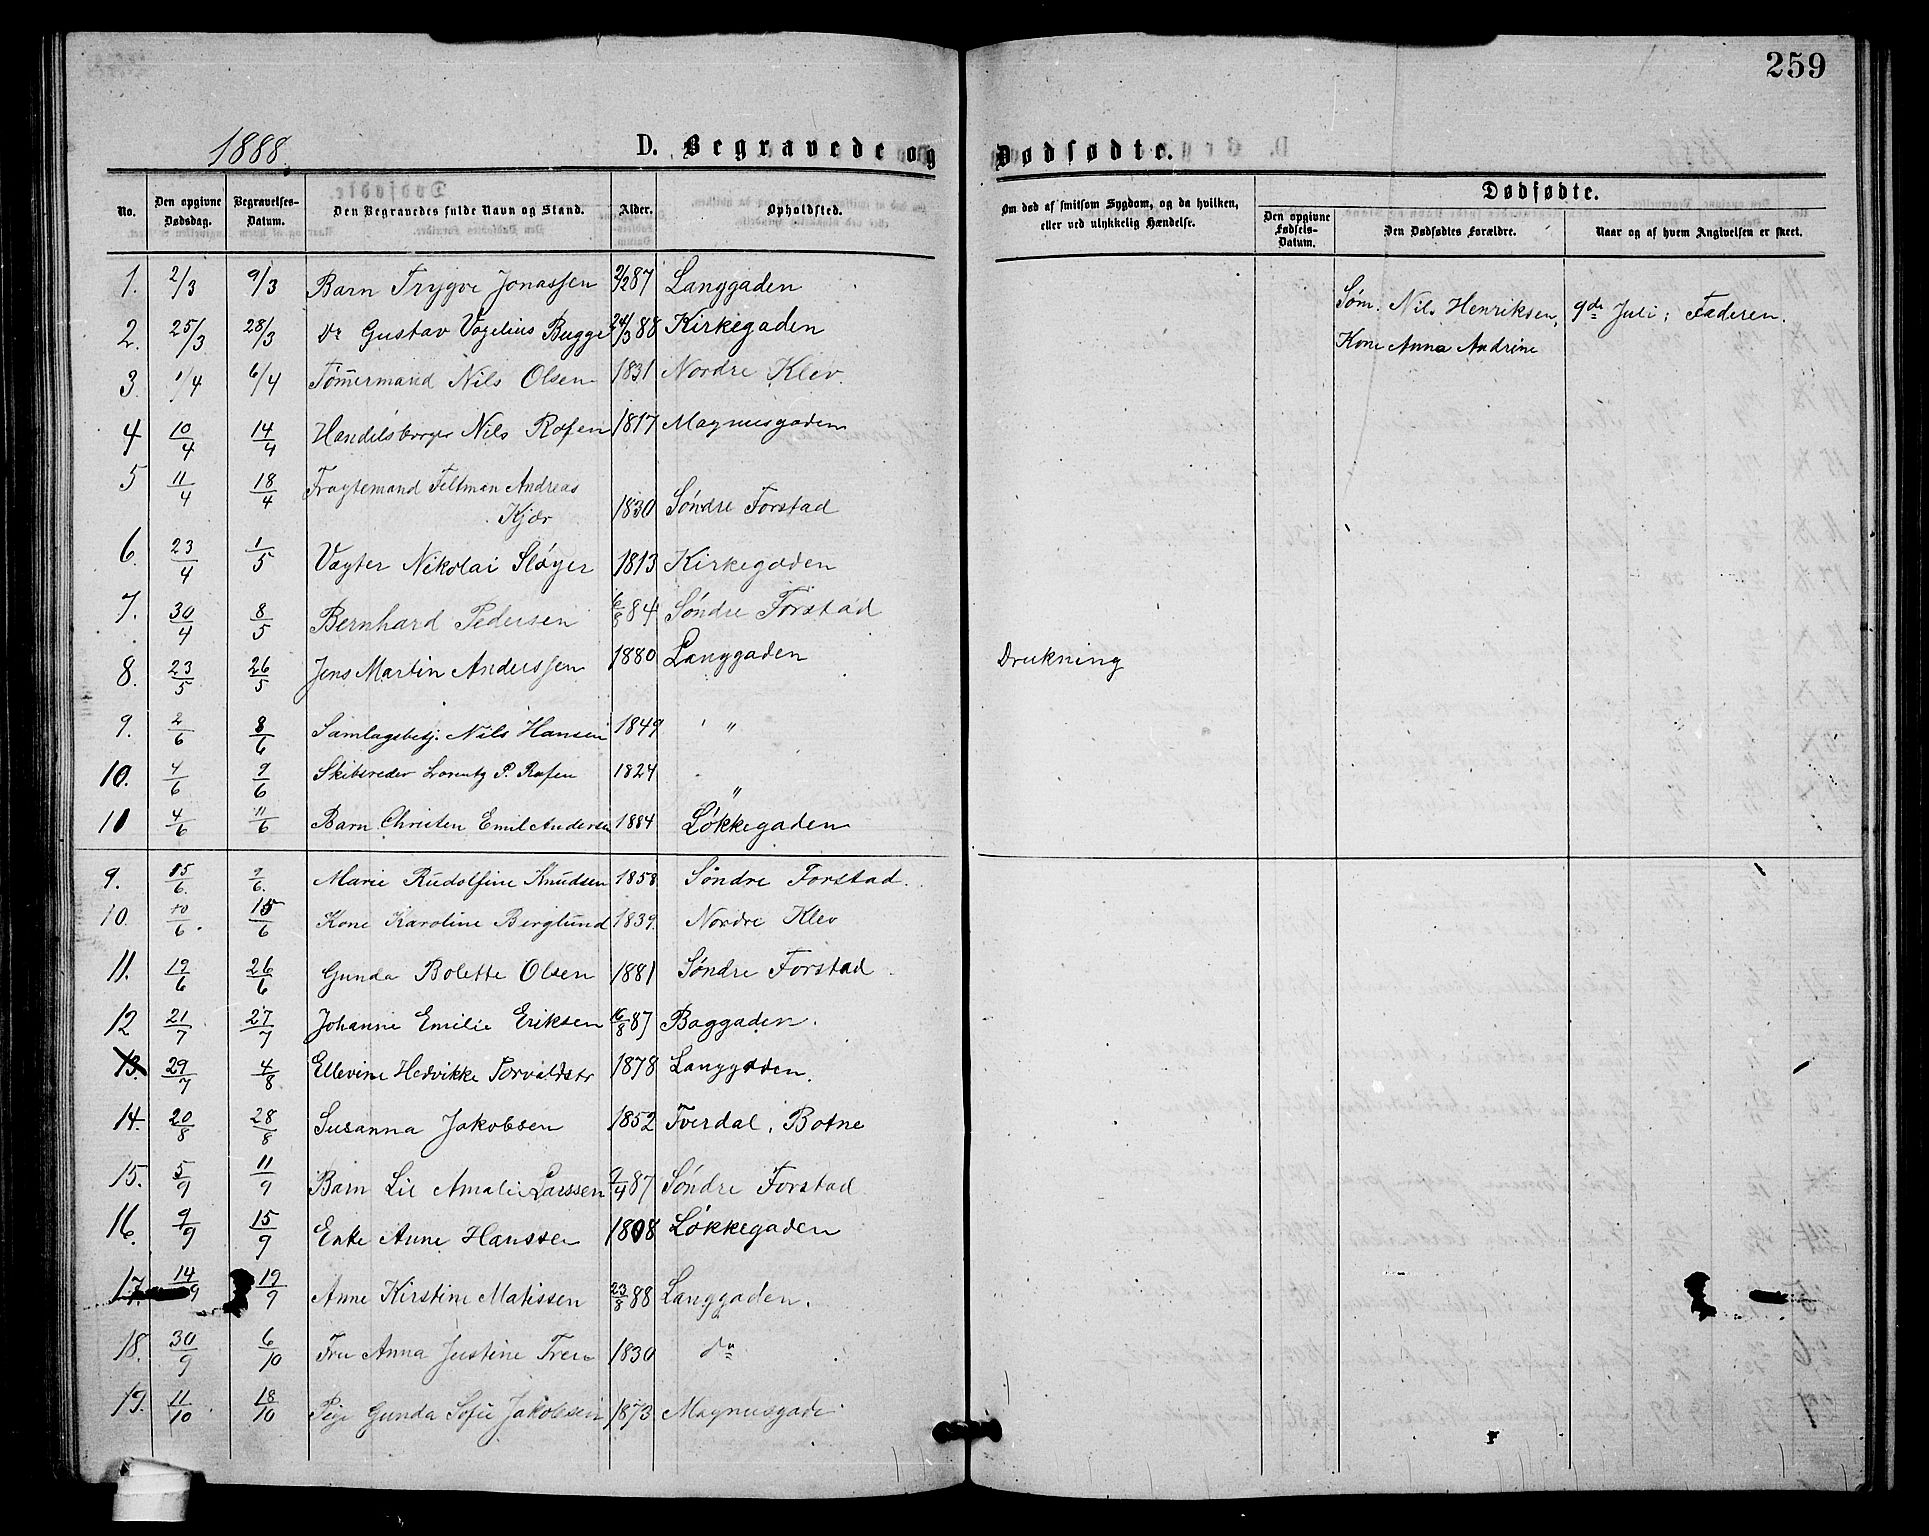 259
1888.
D. Begravede og Dødfødte.
No. Den opgivne Dødsdag. Begravelses-Datum. Den Begravedes fulde Navn og Stand. Alder. Opholdsted. Om død af smitsom Sygdom, og da hvilken, eller ved ulykkelig Hændelse. Dødfødte.
Den opgivne Fødsels-Datum. Den Dødfødtes Forældre. Naar og af hvem Angivelsen er skeet.
1. 2/3 9/3 Barn Trygve Jonassen 2/287 Langgaden
Søm. Nils Henriksen, 9de Juli; Faderen.
2. 25/3 28/3 do Gustav Vogelius Bugge 24/388 Kirkegaden
Kone Anna Andrine
3. 1/4 6/4 Tømmermand Nils Olsen 1831 Nordre Klev.
4 10/4 14/4 Handelsborger Nils Rafen 1817 Magnusgaden
5 11/4 18/4 Fragtemand Feltman Andreas
Kjær 1830 Søndre Forstad
6. 23/4 1/5 Vægter Nikolai Sløyer 1813 Kirkegaden
7. 30/4 8/5 Bernhard Pedersen 84 Søndre Forstad
8. 23/5 26/5 Jens Martin Anderssen 1880 Langgaden Drukning
9. 2/6 8/6 Samlagsbesj. Nils Hansen 1849 "
10. 4/6 9/6 Skibsreder Lorentz P. Rafen 1824 "
11 4/6 11/6 Barn Christen Emil Andersen 1884 Løkkegaden
9. 15/6 7/6. Marie Rudolfine Knudsen 1858 Søndre Forstad.
10. 10/6. 15/6 Kone Karoline Berglund 1839. Nordre Klev
11. 19/6 26/6 Gunda Bolette Olsen 1881 Søndre Forstad
12 21/7 27/7 Johanne Emilie Eriksen 16/887 Baggaden.
13. 29/7 4/8 Ellevine Hedvikke Torvaldstr 1878 Langgaden.
14. 20/8 28/8 Susanna Jakobsen 1852 Tverdal, Botne
15. 5/9 11/9 Barn Lil Amalie Larssen 9/487 Søndre Forstad
16. 9/9 15/9 Enke Anne Hanssen 1808 Løkkegaden
17. 14/9 19/9 Anne Kirstine Matissen 23/888 Langgaden.
18. 30/9 6/10 Fru Anna Justine 1830 do
19. 11/10 18/10 Pige Gunda Sofie Jakobsen 1873 Magnusgade